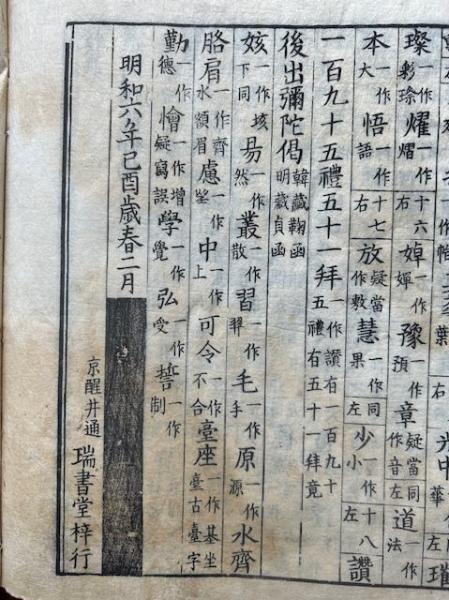 璨一作彩琮燿一作熠十六右婥一作嬋豫一作預章疑當同作音左道一作法
本一作大悟一作語十七右放疑當作敷慧一作果同左少一作小十八左讚
一百九十五禮五十一拜一作讚有一百九十五禮有五十一拜竟
後出彌陀偈韓藏鞠函明藏貞函
姟一作垓下同易一作然叢一作散習一作毛一作手原一作源水齊
胳肩一作齊水額眉慮一作中一作上可令一作不合臺座一作基坐臺古臺字
勤一作德憎一作增疑寫誤學一作覺弘一作受誓一作制
明和六年己酉歳春二月
京醒井通 瑞書堂梓行